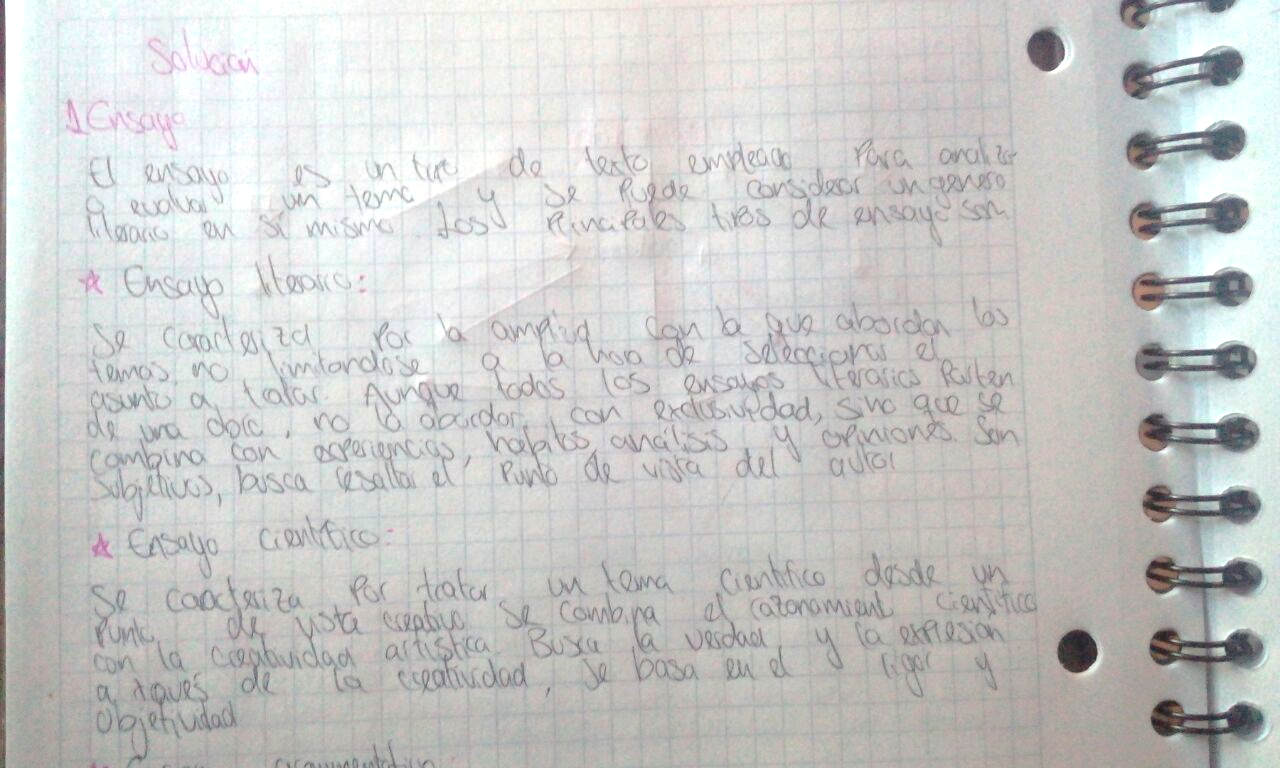 Solución
1 Ensayo
El ensayo es un tipo de texto empleado para analizar
o evaluar un tema y se puede considerar un genero
literario en sí mismo. Los Principales tipos de ensayo son
☆ Ensayo literario:
Se caracteriza Por la amplitud con la que abordan los
temas no limitandose a la hora de seleccionar el
asunto a tratar. Aunque todos los ensayos literarios Parten
de una obra, no la abordan con exclusividad, sino que se
combina con experiencias, habitos, análisis y opiniones. Son
Subjetivos, busca resaltar el Punto de vista del autor
☆ Ensayo científico:
Se caracteriza Por tratar un tema científico desde un
Punto de vista creativo Se combina el razonamient científico
con la creatividad artística. Busca la verdad y la expresión
a través de la creatividad, se basa en el rigor y
Objetividad
argumentativo: